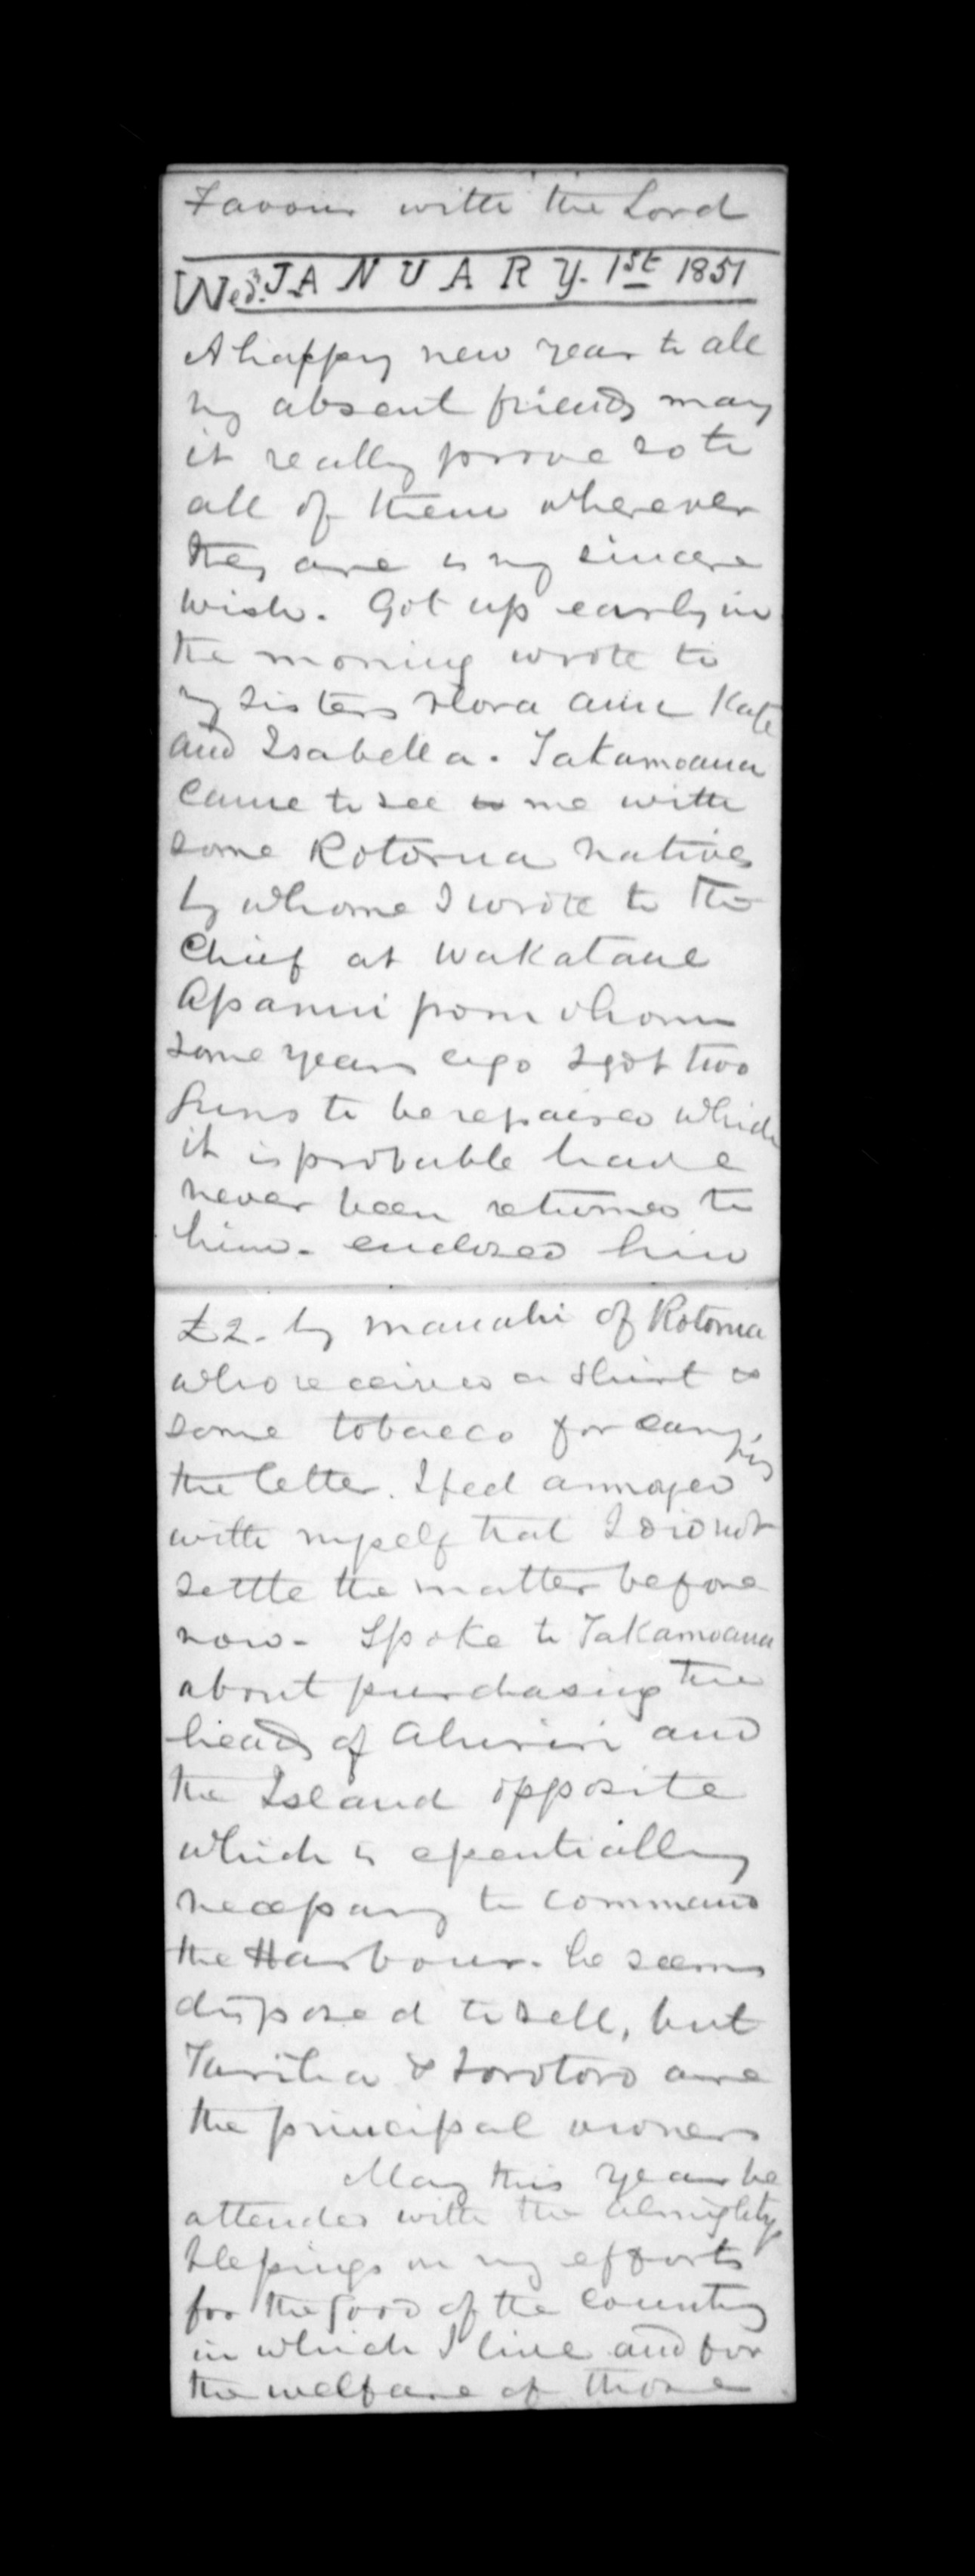 Favour with the Lord
Wed. JANUARY. 1st 1851
A happy new year to all
my absent friends may
it really prove so to
all of them wherever
they are is my sincere
wish. Got up early in
the morning wrote to
my sisters Flora Ann Kate
and Isabella. Takamoana
came to see me with
some Rotorua natives
by whome I wrote to the
Chief at Wakatane
Apanui from whom
some years ago I got two
Guns to be repaired which
it is probable have
never been returned to
him. enclosed him
£2. by Manahi of Rotorua
who received a Shirt &
some tobacco for carrying
the letter. I feel annoyed
with myself that I did not
settle the matter before
now. Spoke to Takamoana
about purchasing the
heads of Ahuriri and
the Island opposite
which is essentially
necessary to command
the Harbour. he seems
disposed to sell, but
Tariha & Torotoro are
the principal owners
May this year be
attended with the almightys
blessings on my efforts
for the good of the Country
in which I live and for
the welfare of those